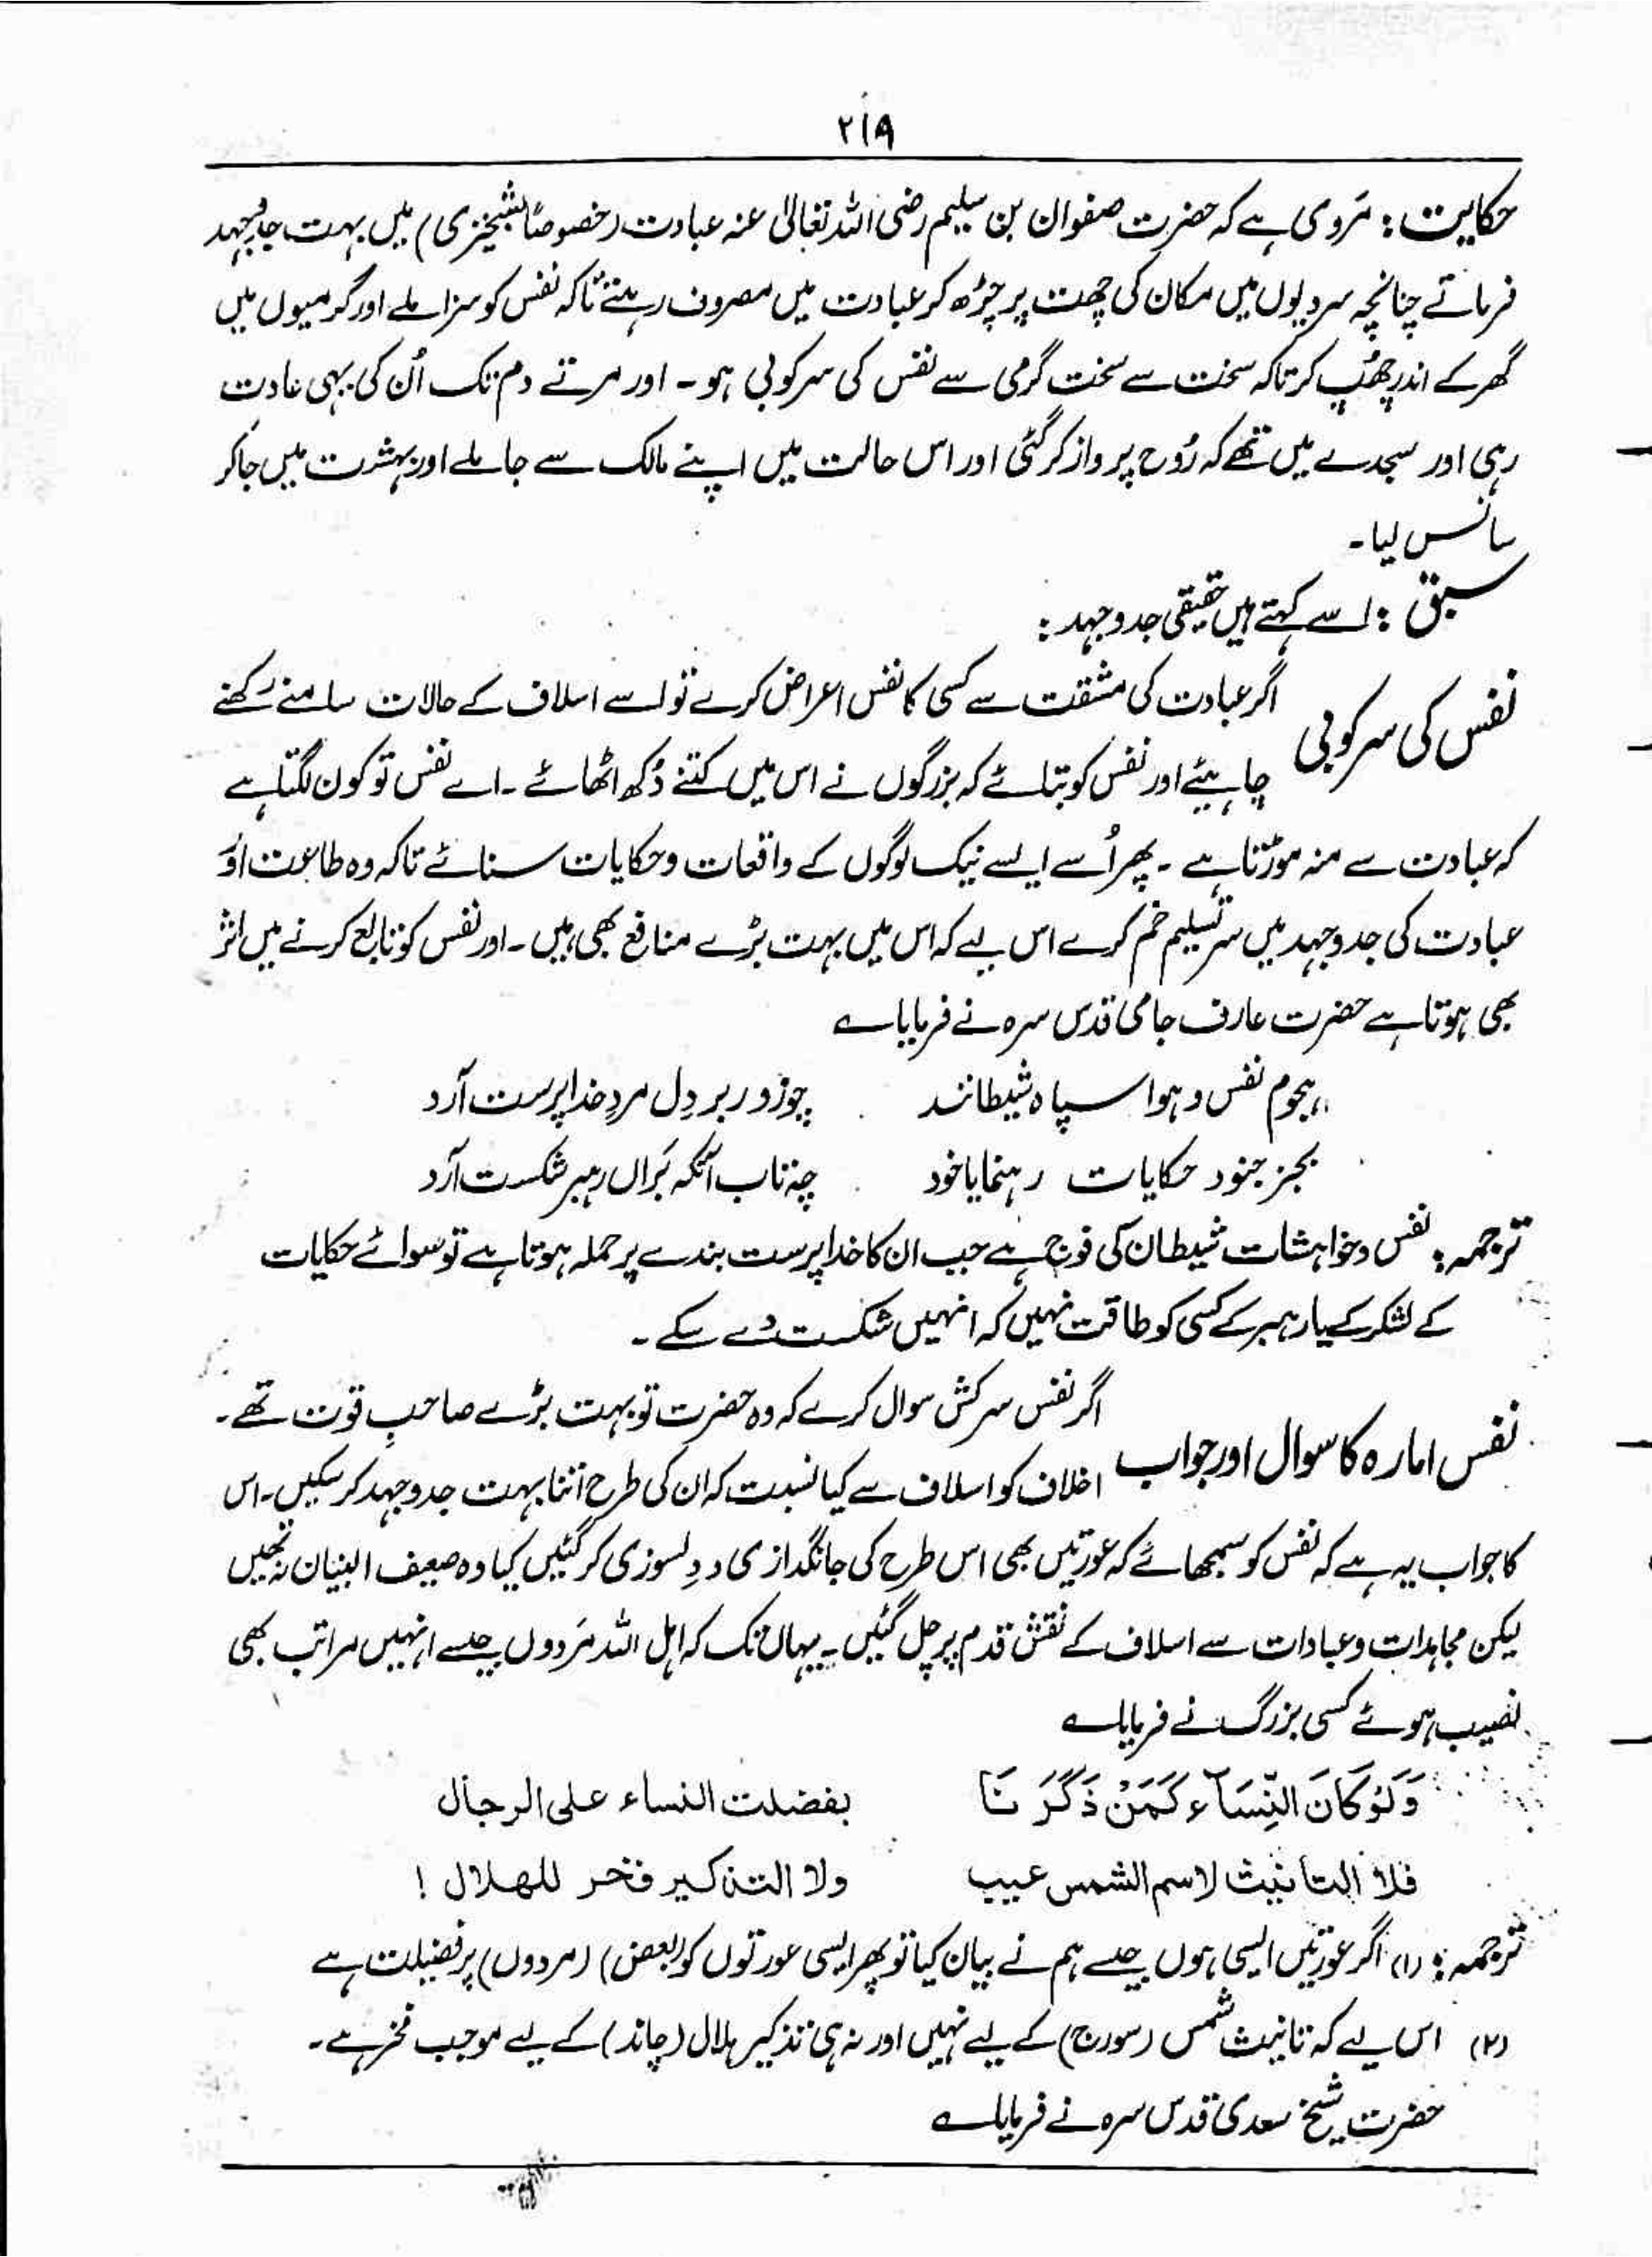 ۲۱۹
حکایت : مَروی ہے کہ حضرت صفوان بن سلیم رضی اللہ تعالیٰ عنہ عبادت (خصوصًا شبخیزی) میں بہت جدوجہد
فرماتے چنانچہ سردیوں میں مکان کی چھت پر چڑھ کر عبادت میں مصروف رہتے تاکہ نفس کو سزا ملے اور گرمیوں میں
گھر کے اندر چھُپ کر تاکہ سخت سے سخت گرمی سے نفس کی سرکوبی ہو۔ اور مرتے دم تک اُن کی یہی عادت
رہی اور سجدے میں تھے کہ رُوح پرواز کرگئی اور اس حالت میں اپنے مالک سے جاملے اور بہشت میں جاکر
سانس لیا۔
سبق : اسے کہتے ہیں حقیقی جدوجہد :
نفس کی سرکوبی اگر عبادت کی مشقت سے کسی کا نفس اعراض کرے تو اسے اسلاف کے حالات سامنے رکھنے
چاہیئے اور نفس کو بتائے کہ بزرگوں نے اس میں کتنے دُکھ اٹھائے۔ اے نفس تو کون لگتا ہے
کہ عبادت سے منہ موڑتا ہے۔ پھر اُسے ایسے نیک لوگوں کے واقعات و حکایات سنائے تاکہ وہ طاعت اور
عبادت کی جدوجہد میں سرتسلیم خم کرے اس لیے کہ اس میں بہت بڑے منافع بھی ہیں۔ اور نفس کو تابع کرنے میں اثر
بھی ہوتا ہے حضرت عارف جامی قدس سرہ نے فرمایا ے
ہجوم نفس و ہوا سپاہ شیطانند چوزور بر دِل مردِ خدا پرست آرد
بجز جنود حکایات رہنمایاخود چہ تاب آنکہ بَراں رہبر شکست آرد
ترجمہ : نفس وخواہشات شیطان کی فوج ہے جب ان کا خدا پرست بندے پر حملہ ہوتا ہے تو سوائے حکایات
کے لشکر کے یا رہبر کے کسی کو طاقت نہیں کہ انہیں شکست دے سکے۔
نفس امارہ کا سوال اور جواب اگر نفس سرکش سوال کرے کہ وہ حضرت تو بہت بڑے صاحبِ قوت تھے۔
اخلاف کو اسلاف سے کیا نسبت کہ ان کی طرح اتنا بہت جدوجہد کرسکیں۔ اس
کا جواب یہ ہے کہ نفس کو سمجھائے کہ عورتیں بھی اس طرح کی جانگدازی و دِلسوزی کر گئیں کیا وہ ضعیف البنیان نہ تھیں
لیکن مجاہدات وعبادات سے اسلاف کے نقش قدم پر چل گئیں۔ یہاں تک کہ اہل اللہ مَردوں جیسے انہیں مراتب بھی
نصیب ہوئے کسی بزرگ نے فرمایا ے
وَلَوْ كَانَ النِّسَآء كَمَنْ ذَكَرْنَا بفضلت النساء على الرجال
فلا التأنيث لاسم الشمس عيب ولا التذكير فخر للهلال !
ترجمہ : (۱) اگر عورتیں ایسی ہوں جیسے ہم نے بیان کیا تو پھر ایسی عورتوں کو (بعض) (مردوں) پر فضیلت ہے
(۲) اس لیے کہ تانیث شمس (سورج) کے لیے نہیں اور نہ ہی تذکیر ہلال (چاند) کے لیے موجب فخر ہے۔
حضرت شیخ سعدی قدس سرہ نے فرمایا ے